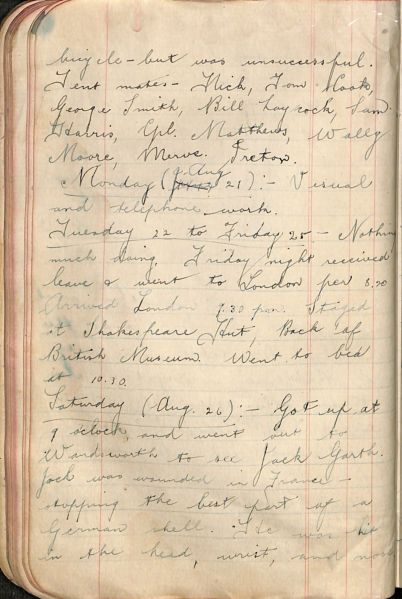 bicycle - but was unsuccessful.
Tent mates - Nick, Tom Hook,
George Smith, Bill Laycock, Sam
Harris, Cpl. Matthews, Wally
Moore, Merve. Freton.
Aug
Monday ( 21) :- Visual
and telephone work.
Tuesday 22 to Friday 25 - Nothing
much doing. Friday night received
leave & went to London per 5.20
Arrived London 9.30 pm. Stayed
at Shakespeare Hut, Back of
British Museum. Went to bed
at 10.30.
Saturday (Aug. 26) :- Got up at
9 oclock, and went out to
Wandsworth to see Jack Garth.
Jack was wounded in France -
stopping the best part of a
German shell. He was hit
in the head, wrist, and